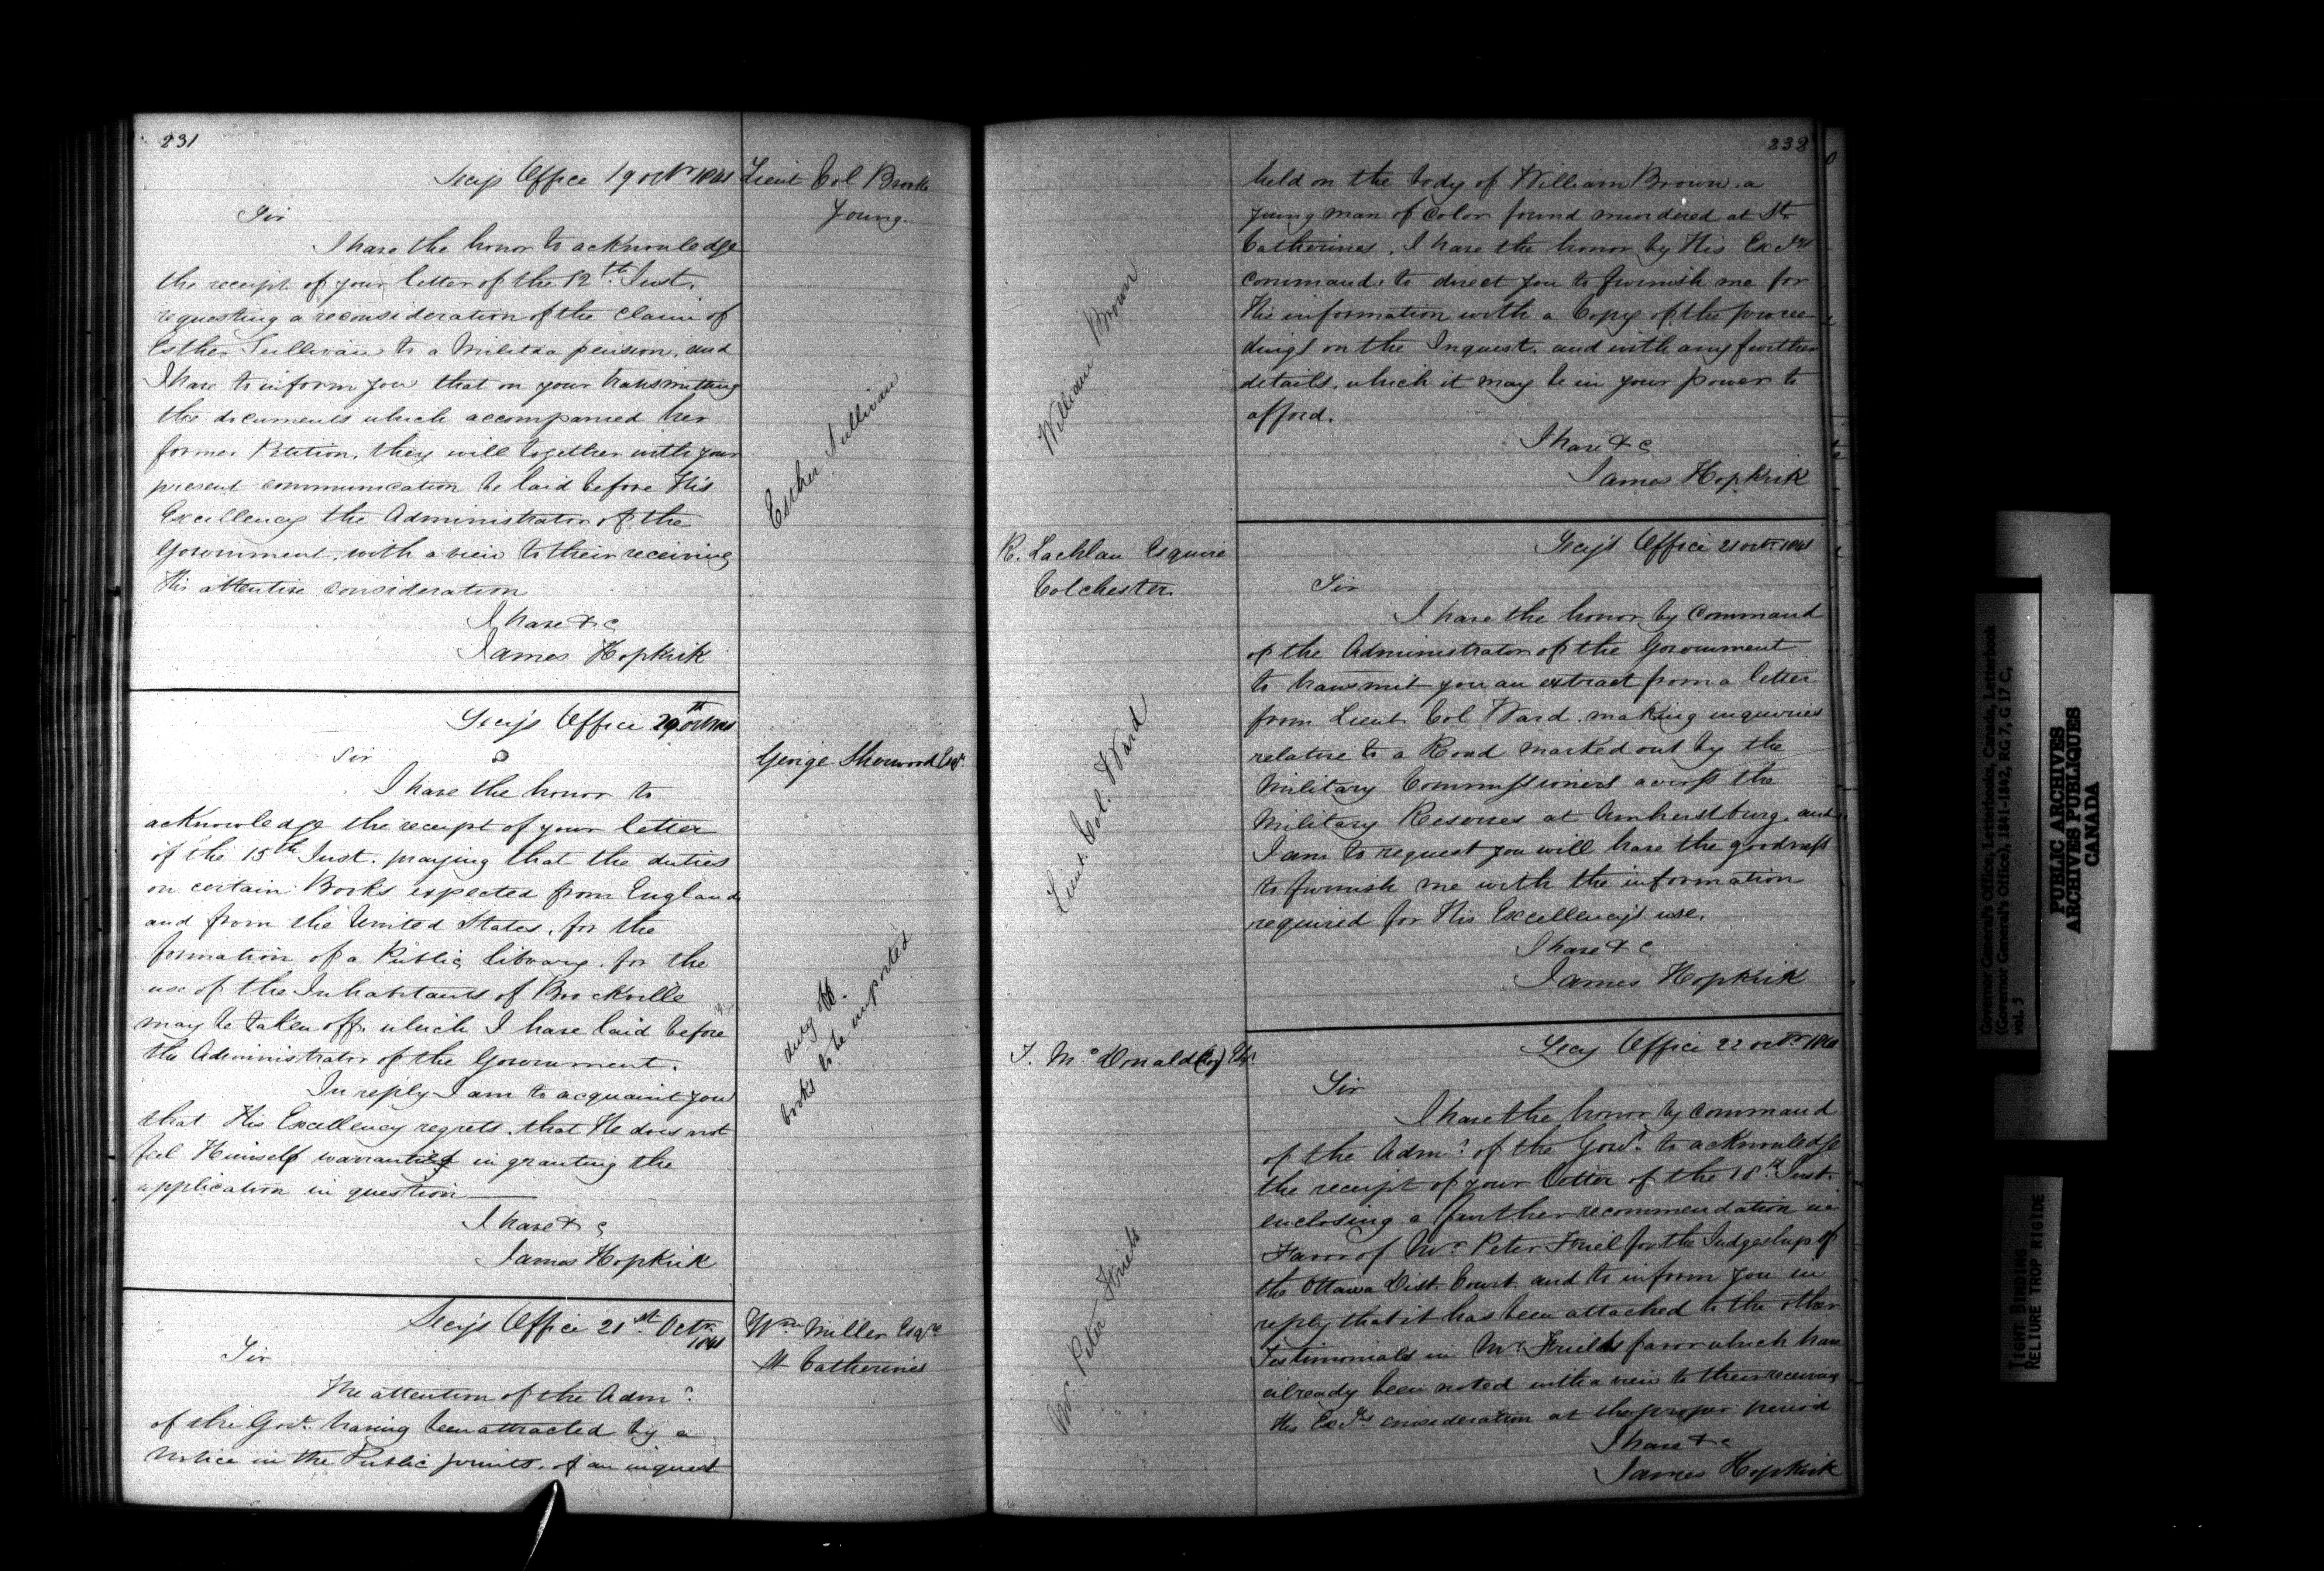 231
Secy's Office 19 Octr 1841
Lieut Col Brooke
Young.
Sir
I have the honor to acknowledge
the receipt of your letter of the 12th Inst.
requesting a reconsideration of the claim of
Esther Sullivan to a Militia pension, and
I have to inform you that on your transmitting
the documents which accompanied her
former Petition, they will together with your
present communication be laid before His
Excellency the Administrator of the
Government, with a view to their receiving
His attentive consideration
I have &c
James Hopkirk
Esther Sullivan
Secy's Office 20th Octr 1841
George Sherwood Esqr.
Sir
I have the honor to
acknowledge the receipt of your letter
of the 15th Inst. praying that the duties
on certain Books expected from England
and from the United States, for the
formation of a Public library, for the
use of the Inhabitants of Brockville
may be taken off, which I have laid before
the Administrator of the Government.
In reply I am to acquaint you
that His Excellency regrets, that He does not
feel Himself warranted in granting the
application in question
I have & c
James Hopkirk
duty off.
books to be imported
Secy's Office 21st Octr.
1841
Wm Miller Esqre
St Catherines
Sir
The attention of the Admr.
of the Govt. having been attracted by a
Notice in the Public prints, of an inquest
232
held on the body of William Brown, a
young man of color found murdered at St
Catherines, I have the honor by His Excys
command, to direct you to furnish me for
His information with a Copy of the procee
dings on the Inquest, and with any further
details, which it may be in your power to
afford.
I have & c
James Hopkirk
William Brown
R. Lachlan Esquire
Colchester
Secy's Office 21 Octr 1841
Sir
I have the honor by Command
of the Administrator of the Government
to transmit you an extract from a letter
from Lieut. Col Ward, making inquiries
relative to a Road marked out by the
Military Commissioners across the
Military Reserves at Amherstburg, and
I am to request you will have the goodness
to furnish me with the information
required for His Excellency's use.
I have & c
James Hopkirk
Lieut. Col. Ward
Secy Office 22 Octr 1841
Sir
I have the honor by Command
of the Admr. of the Govt. to acknowledge
the receipt of your letter of the 18th Inst.
enclosing a further recommendation in
Favor of Mr Peter Friel for the Judgeship of
the Ottawa Dist. Court, and to inform you in
reply that it has been attached to the other
Testimonials in Mr. Friel's favor which have
already been noted with a view to their receiving
His Excys consideration at the proper period
I have & c
James Hopkirk
Mr. Peter Friel
Governor General's Office, Letterbooks, Canada, Letterbook
(Governor General's Office), 1841-1842, RG 7, G 17 C,
vol. 5
PUBLIC ARCHIVES
ARCHIVES PUBLIQUES
CANADA
TIGHT BINDING
RELIURE TROP RIGIDE